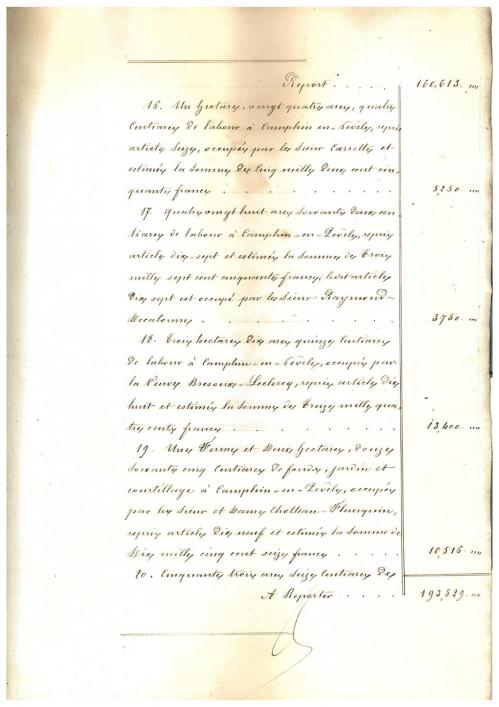 Report . . . . . 160,613. "
16. Un hectare, vingt quatre ares, quatre
Centiares de labour à Camphin en-Pévèle, repris
article Seize, occupés par le Sieur Carrette et
estimés la somme de Cinq mille deux cent cin-
quante francs . . . . . 5,250. "
17. Quatre vingt huit ares soixante deux cen-
tiares de labour à Camphin-en-Pévèle, repris
article dix-sept et estimés la somme de Trois
mille sept cent cinquante francs, ledit article
Dix sept est occupé par le Sieur Raymond-
Decalonne . . . . . 3750. "
18. Trois hectares Dix ares quinze Centiares
de labour à Camphin-en-Pévèle, occupés par
la Veuve -Leclercq, repris article Dix
huit et estimés la somme de Treize mille qua-
tre cents francs . . . . . 13,400. "
19. Une Ferme et Deux hectares, Douze
soixante cinq Centiares de fonds, jardin et
courtillage à Camphin-en-Pévèle, occupés
par les Sieur et Dame Chotteau-Fleurquin,
repris article Dix neuf et estimés la somme de
Dix mille cinq cent seize francs . . . . 10,516. "
20. Cinquante trois ares Seize Centiares De
A Reporter . . . . . 193,529. "